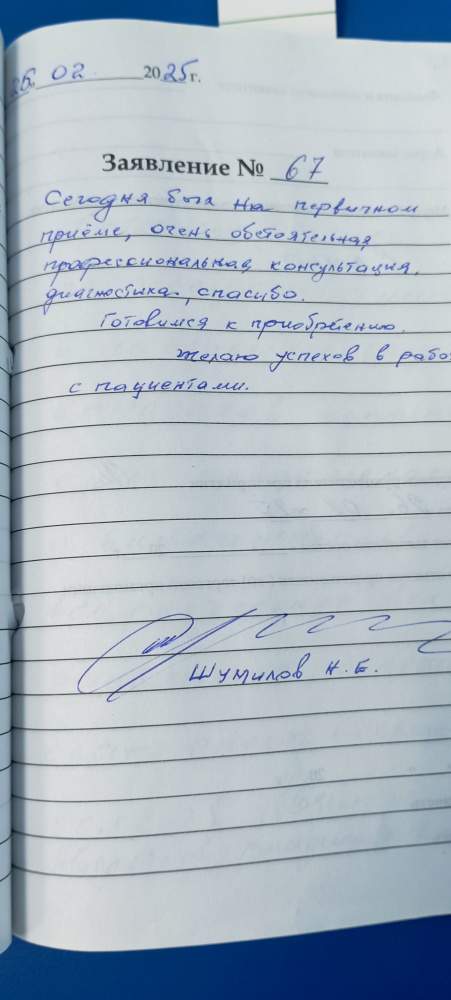 26. 02 2025 г.
Заявление № 67
Сегодня был на первичном
приёме, очень обстоятельная,
профессиональная консультация,
диагностика, спасибо.
Готовимся к приобретению.
Желаю успехов в рабо
с пациентами.
Шумилов Н. Е.